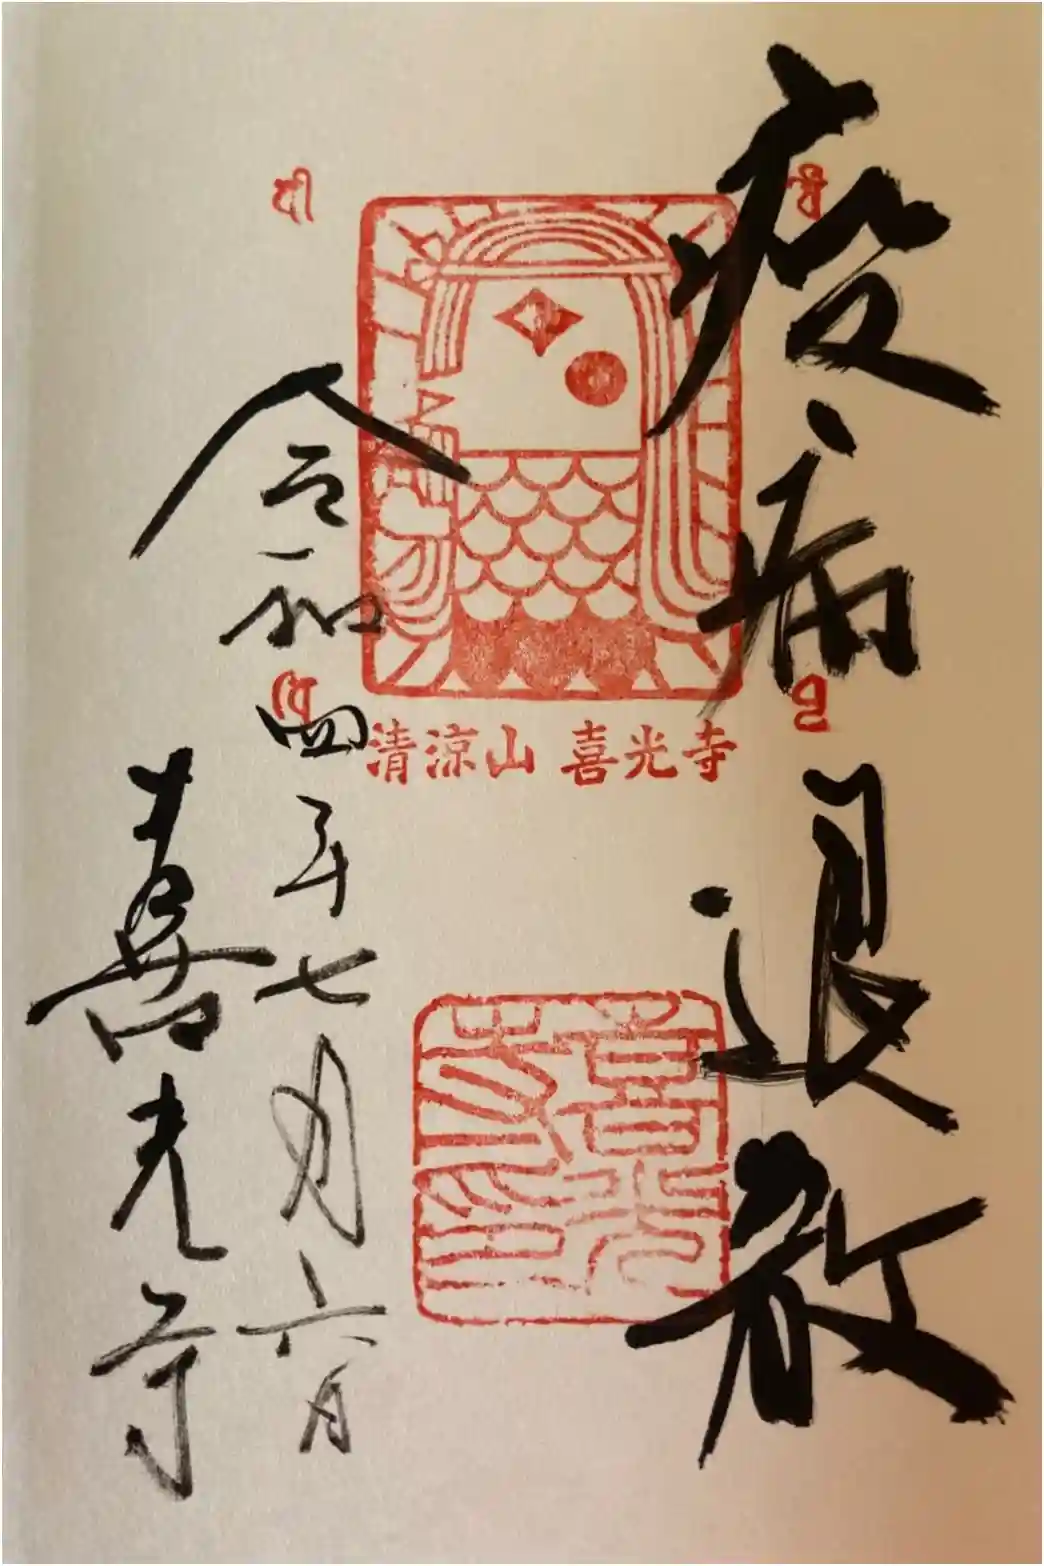 疫病退散
清涼山 喜光寺
喜光寺印
令和四年七月六日
喜光寺